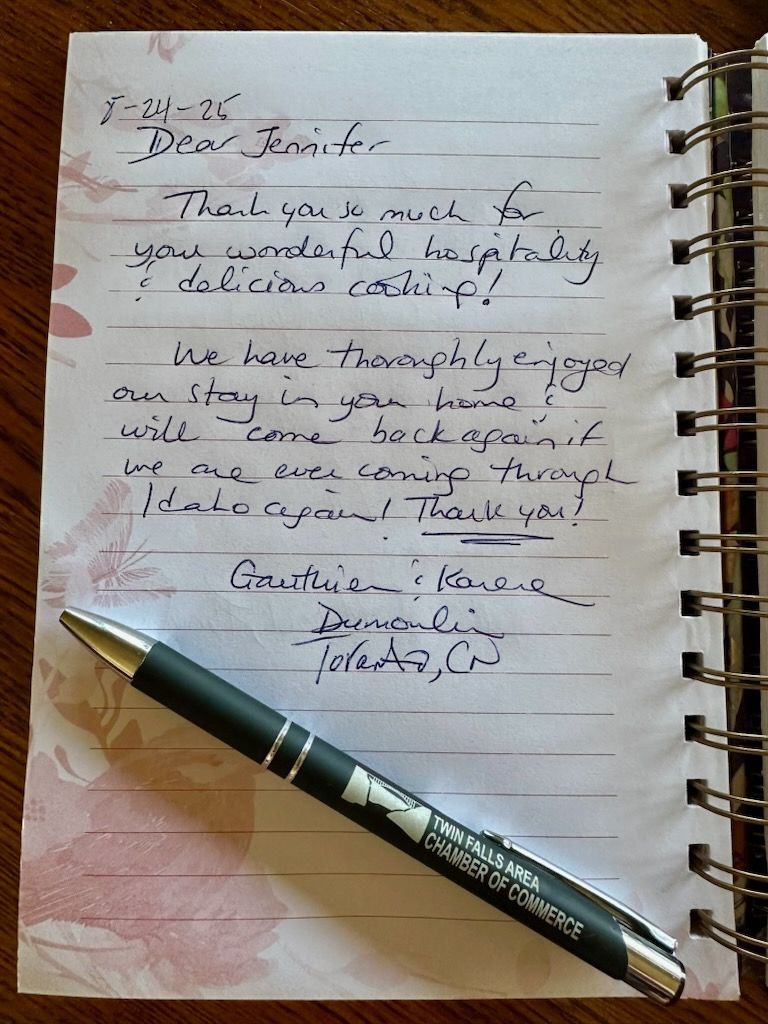 8-24-25
Dear Jennifer
Thank you so much for
your wonderful hospitality
& delicious cooking!
We have thoroughly enjoyed
our stay in your home &
will come back again if
we are ever coming through
Idaho again! Thank you!
Gauthier & Karene
Dumoulin
Toronto, CN
TWIN FALLS AREA
CHAMBER OF COMMERCE